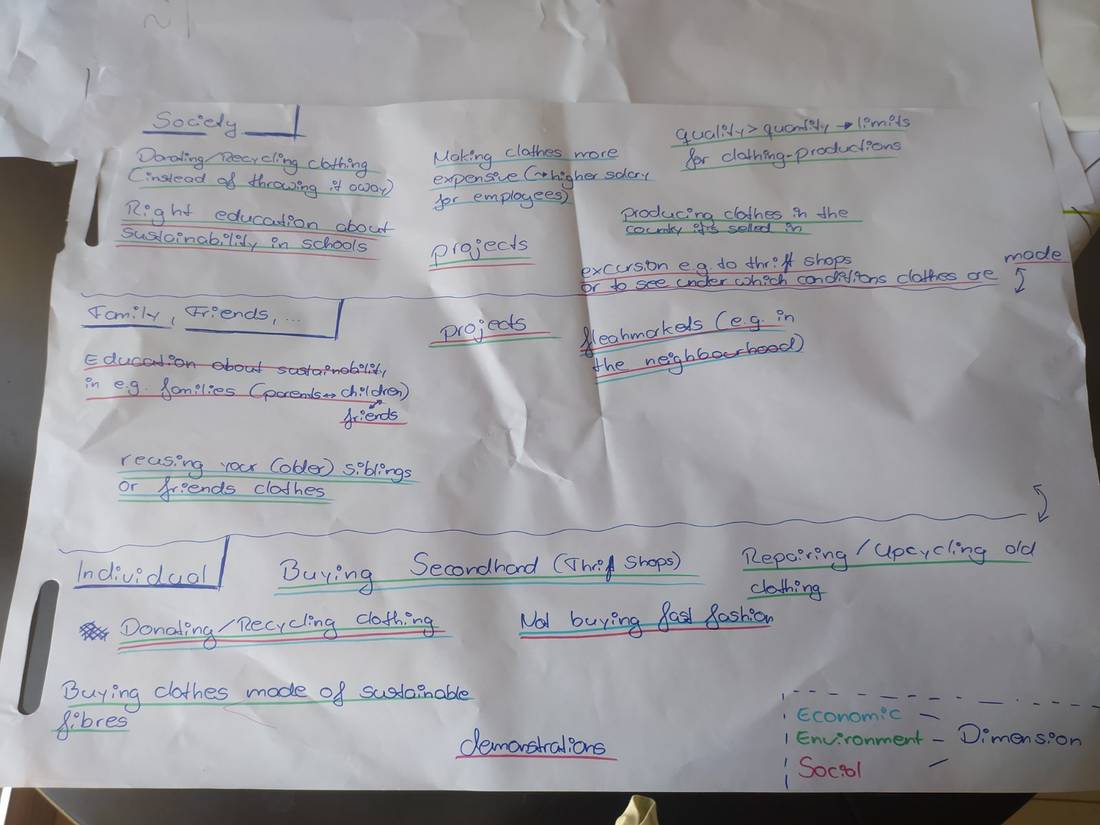 Society
Donating/Recycling clothing
(instead of throwing it away)
Right education about
sustainability in schools
Making clothes more
expensive (→ higher salary
for employees)
projects
quality > quantity → limits
for clothing-productions
producing clothes in the
country it's selled in
excursion e.g. to thrift shops
or to see under which conditions clothes are
made
Family, Friends, ...
Education about sustainability
in e.g. families (parents ↔ children)
friends
reusing your (older) siblings
or friends clothes
projects
fleahmarkets (e.g. in
the neighbourhood)
Individual
Buying Secondhand (Thrift Shops)
Repairing/Upcycling old
clothing
Donating/Recycling clothing
Not buying fast fashion
Buying clothes made of sustainable
fibres
demonstrations
Economic
Environment - Dimension
Social